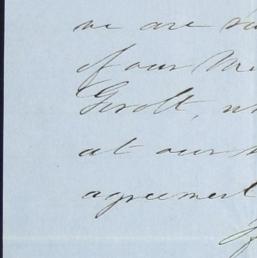 we are
of our
Gerolt,
at our
agreement